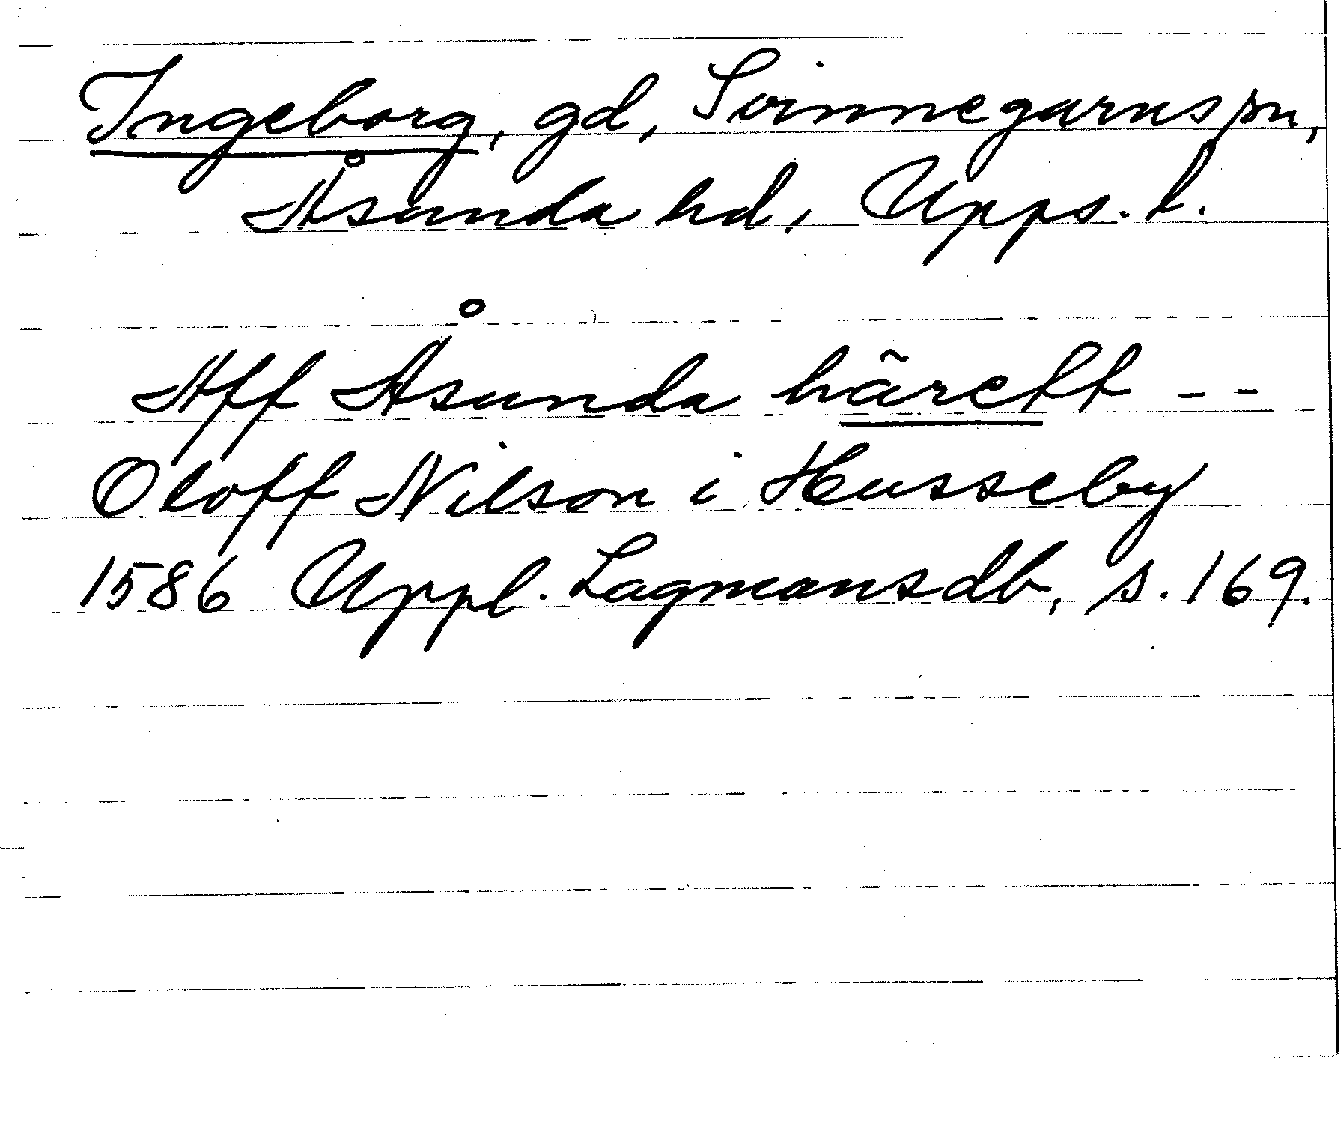 Ingeborg, gd, Svinnegarns sn,
Åsunda hd, Upps. l.
Aff Åsunda härett - -
Oloff Nilson i Husseby
1586 Uppl. Lagmansdb, s. 169.